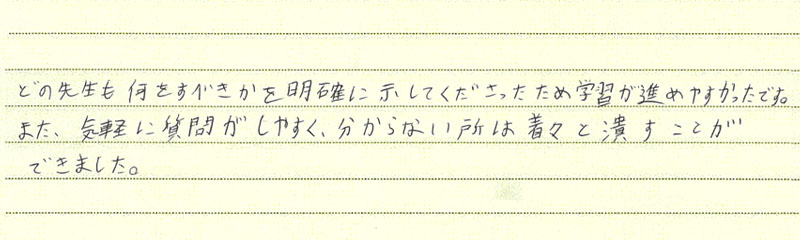 どの先生も何をすべきかを明確に示してくださったため学習が進めやすかったです。
また、気軽に質問がしやすく、分からない所は着々と潰すことが
できました。